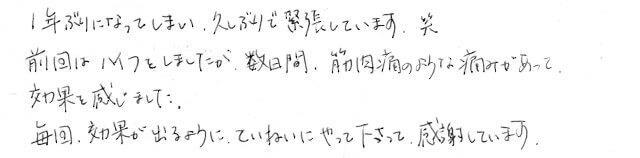 1年ぶりになってしまい、久しぶりで緊張しています。笑
前回はハイフをしましたが、数日間、筋肉痛のような痛みがあって、
効果を感じました。
毎回、効果が出るように、ていねいにやって下さって、感謝しています。